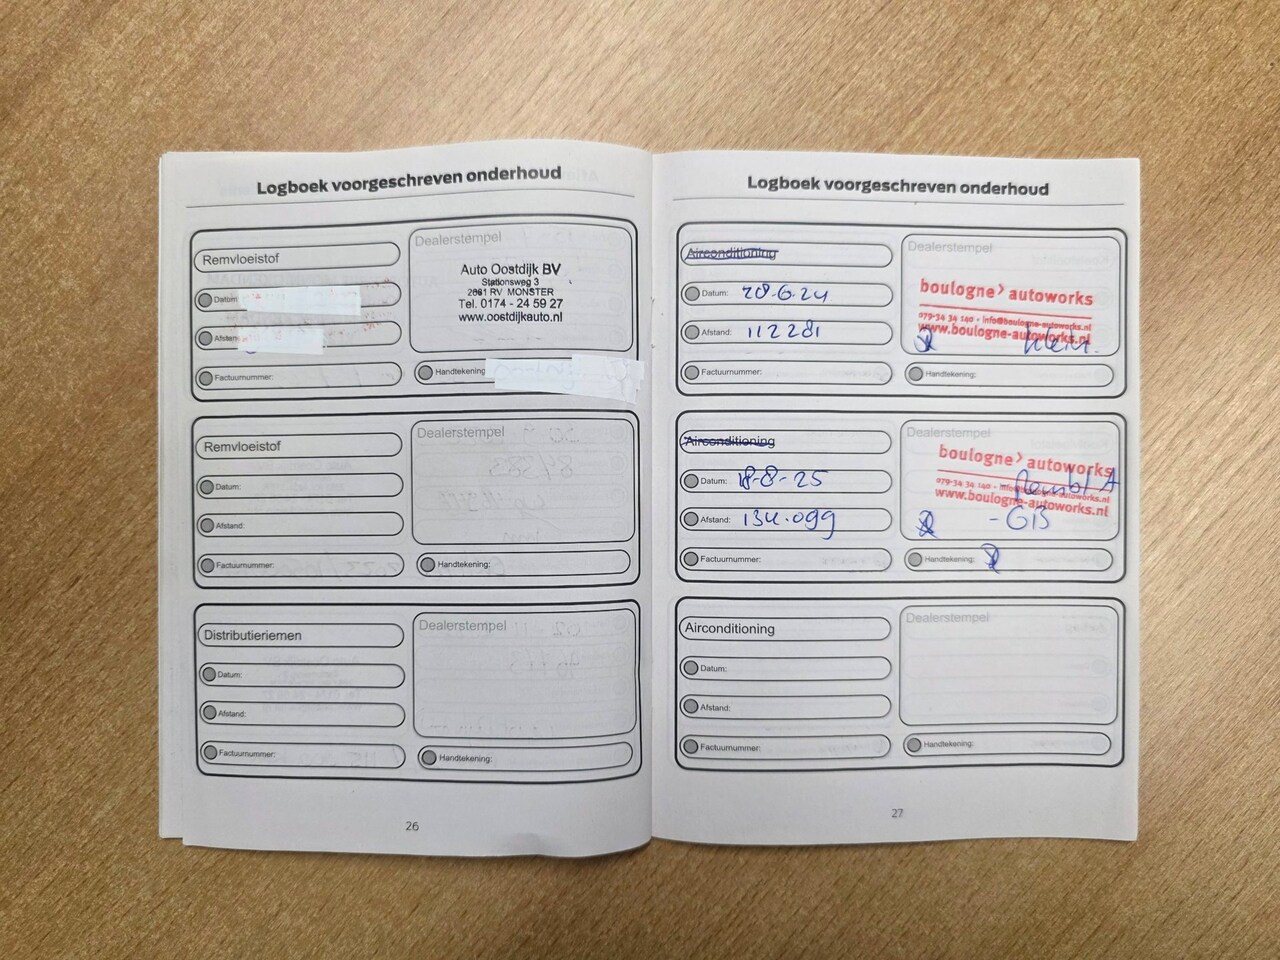 Logboek voorgeschreven onderhoud
Remvloeistof
Datum:
Afstan
Factuurnummer:
Dealerstempel
Auto Oostdijk BV
Stationsweg 3
2681 RV MONSTER
Tel. 0174 - 24 59 27
www.oostdijkauto.nl
Handtekening
Remvloeistof
Datum:
Afstand:
Factuurnummer:
Dealerstempel
Handtekening:
Distributieriemen
Datum:
Afstand:
Factuurnummer:
Dealerstempel
Handtekening:
26
Logboek voorgeschreven onderhoud
Airconditioning
Datum: 28-6-24
Afstand: 112281
Factuurnummer:
Dealerstempel
boulogne> autoworks
079-34 34 140 - info@boulogne-autoworks.nl
www.boulogne-autoworks.nl
klein.
Handtekening:
Airconditioning
Datum: 18-8-25
Afstand: 134.099
Factuurnummer:
Dealerstempel
boulogne> autoworks
079-34 34 140 - info@boulogne-autoworks.nl
www.boulogne-autoworks.nl
- GB
Handtekening:
Airconditioning
Datum:
Afstand:
Factuurnummer:
Dealerstempel
Handtekening:
27